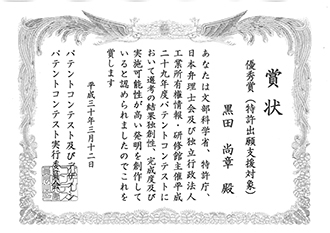 賞状
優秀賞(特許出願支援対象)
黒田 尚章 殿
あなたは文部科学省、特許庁、
日本弁理士会及び独立行政法人
工業所有権情報・研修館主催平成
二十九年度パテントコンテストに
おいて選考の結果独創性、完成度及び
実施可能性が高い発明を創作して
いると認められましたのでこれを
賞します
平成三十年三月十二日
パテントコンテスト及びデザイン
パテントコンテスト実行委員会